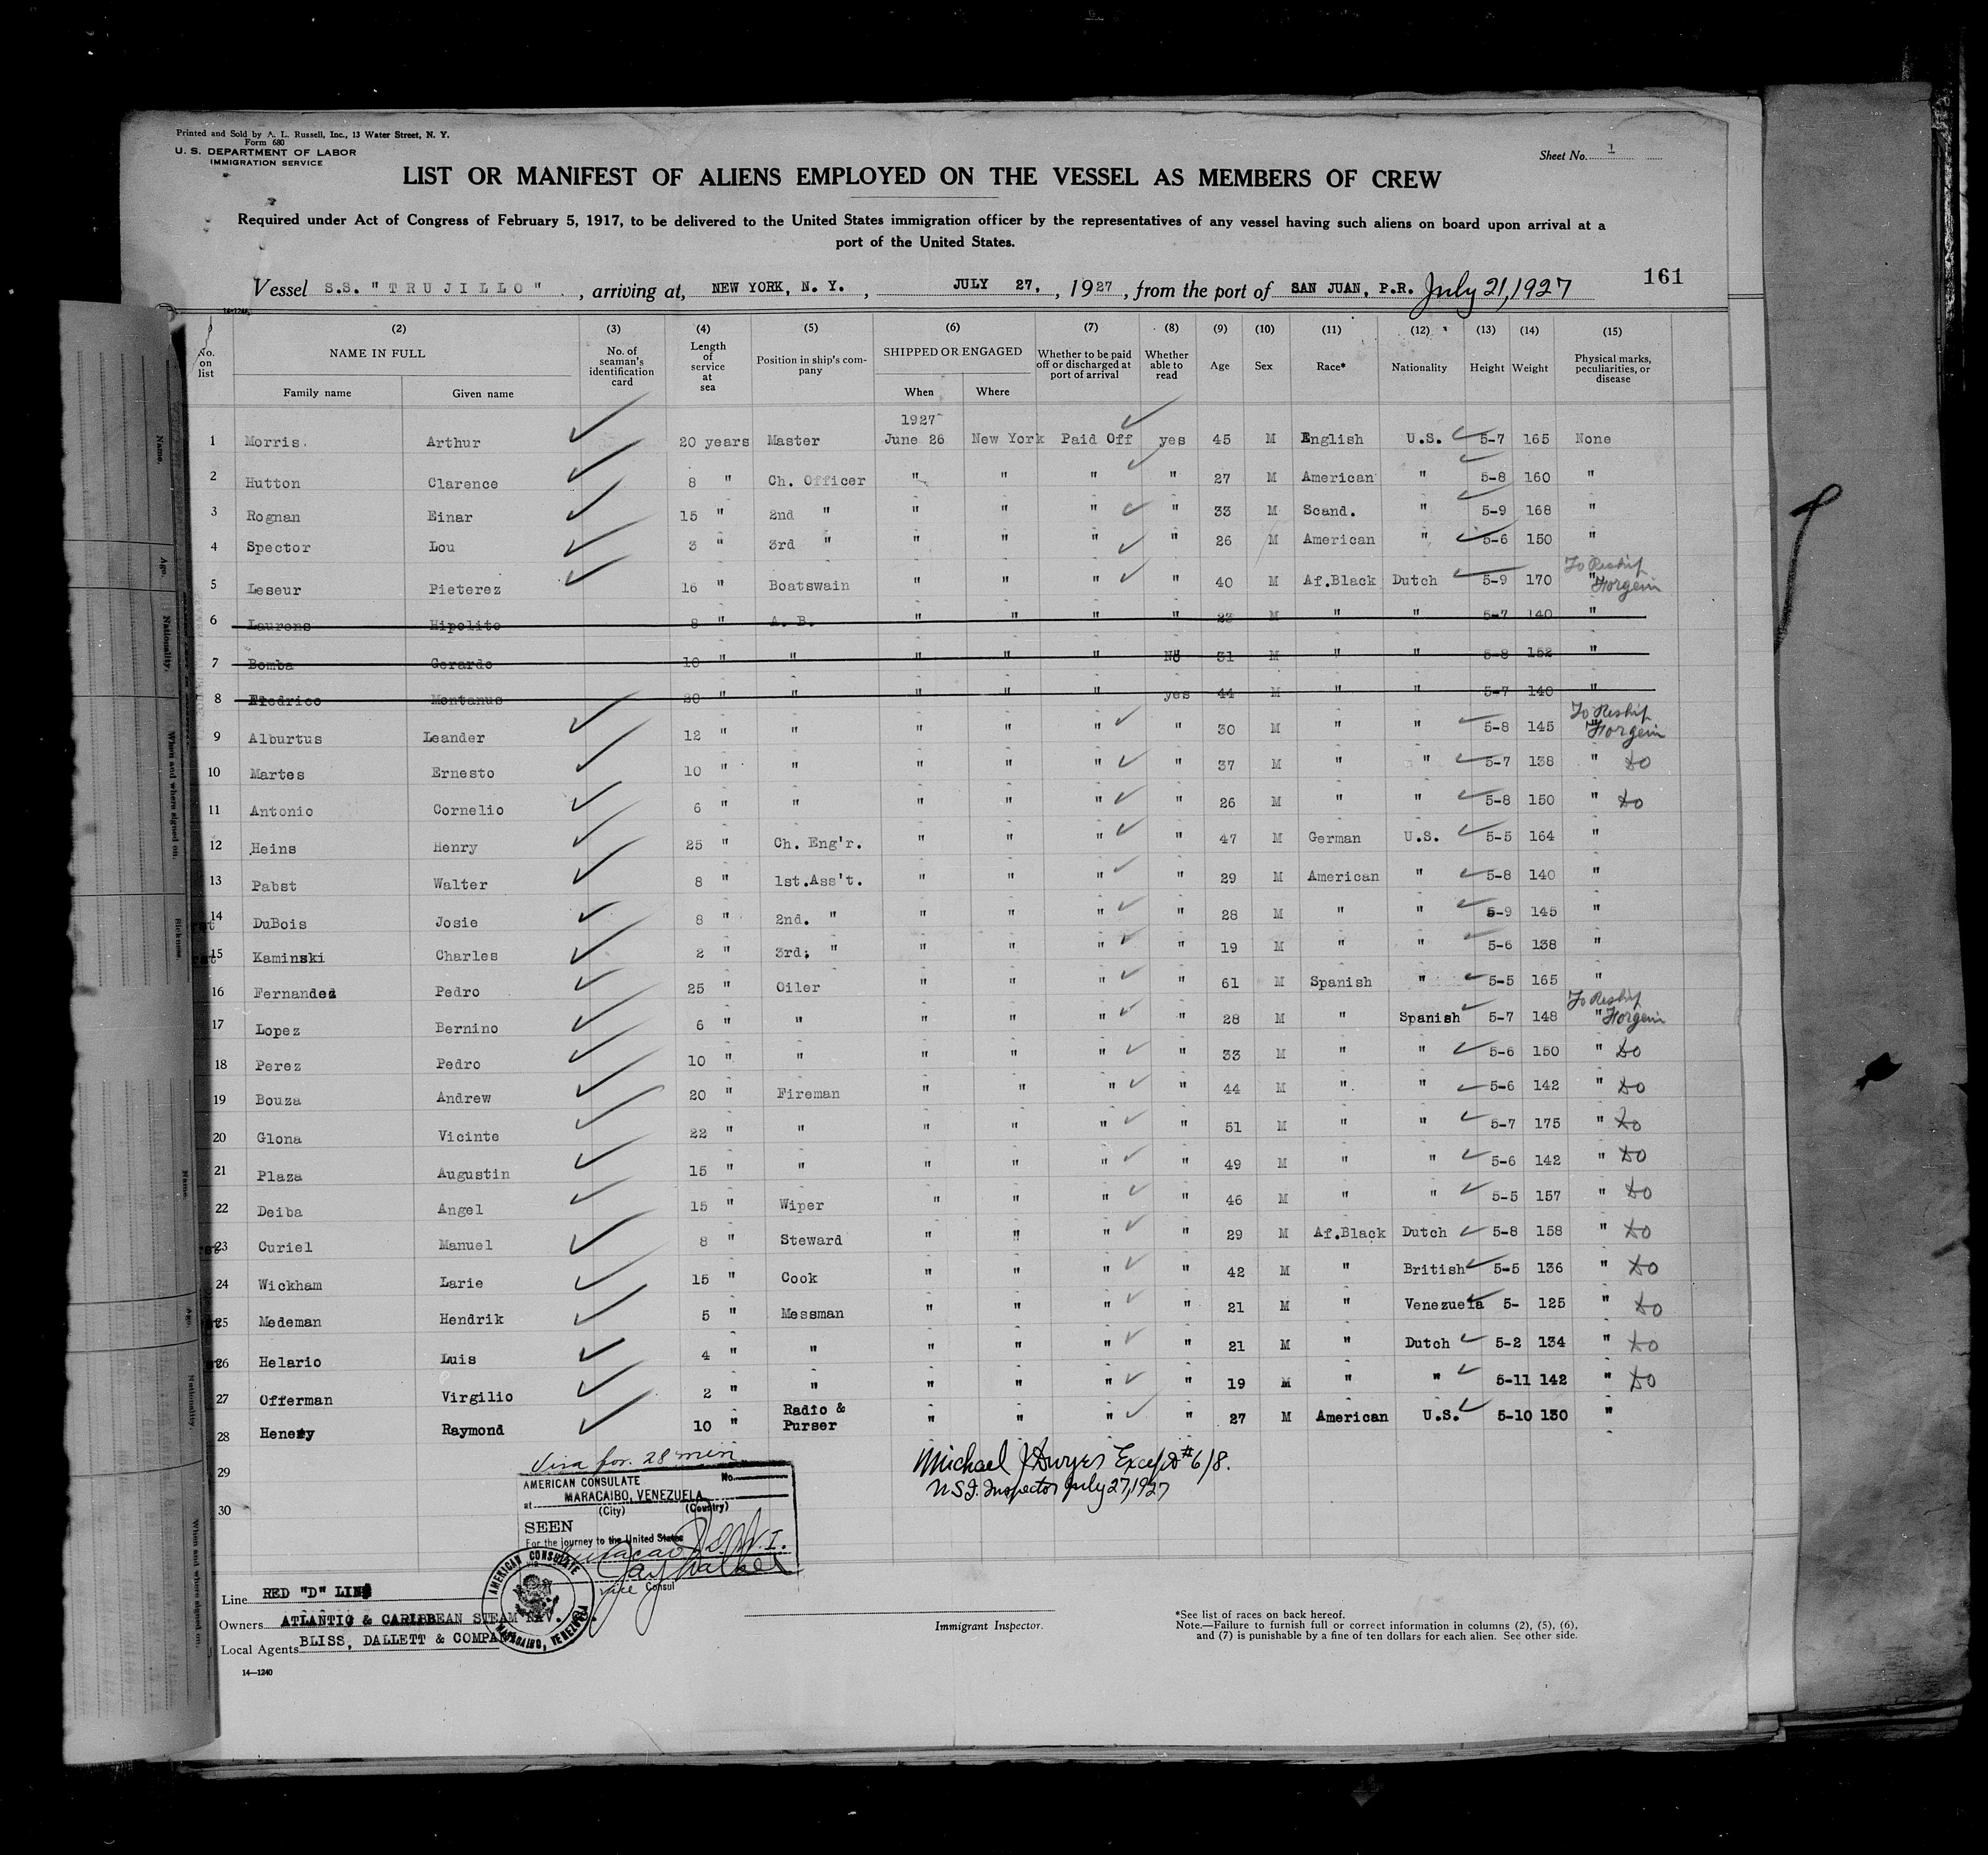 Printed and Sold by A. L. Russell, Inc., 13 Water Street, N. Y.
Form 680
U. S. DEPARTMENT OF LABOR
IMMIGRATION SERVICE
Sheet No. 1
LIST OR MANIFEST OF ALIENS EMPLOYED ON THE VESSEL AS MEMBERS OF CREW
Required under Act of Congress of February 5, 1917, to be delivered to the United States immigration officer by the representatives of any vessel having such aliens on board upon arrival at a
port of the United States.
161
Vessel S.S. "TRUJILLO", arriving at, NEW YORK, N. Y., JULY 27, 1927, from the port of SAN JUAN, P.R. July 21, 1927
(2) (3) (4) (5) (6) (7) (8) (9) (10) (11) (12) (13) (14) (15)
No. on list NAME IN FULL Family name Given name No. of seaman's identification card Length of service at sea Position in ship's company SHIPPED OR ENGAGED When Where Whether to be paid off or discharged at port of arrival Whether able to read Age Sex Race* Nationality Height Weight Physical marks, peculiarities, or disease
1927
1 Morris. Arthur 20 years Master June 26 New York Paid Off yes 45 M English U.S. 5-7 165 None
2 Hutton Clarence 8 " Ch. Officer " " " " 27 M American " 5-8 160 "
3 Rognan Einar 15 " 2nd " " " " " 33 M Scand. " 5-9 168 "
4 Spector Lou 3 " 3rd " " " " " 26 M American " 5-6 150 "
5 Leseur Pieterez 16 " Boatswain " " " " 40 M Af.Black Dutch 5-9 170 " To Reship Forgein
6 Laurens Hipolito 8 " A. B. " " " " 23 M " " 5-7 140 "
7 Bomba Gerardo 10 " " " " " No 31 M " " 5-8 152 "
8 Fredrico Montanus 20 " " " " " yes 44 M " " 5-7 140 "
9 Alburtus Leander 12 " " " " " " 30 M " " 5-8 145 " To Reship Forgein
10 Martes Ernesto 10 " " " " " " 37 M " " 5-7 138 " do
11 Antonio Cornelio 6 " " " " " " 26 M " " 5-8 150 " do
12 Heins Henry 25 " Ch. Eng'r. " " " " 47 M German U.S. 5-5 164 "
13 Pabst Walter 8 " 1st.Ass't. " " " " 29 M American " 5-8 140 "
14 DuBois Josie 8 " 2nd. " " " " " 28 M " " 5-9 145 "
15 Kaminski Charles 2 " 3rd; " " " " " 19 M " " 5-6 138 "
16 Fernandez Pedro 25 " Oiler " " " " 61 M Spanish " 5-5 165 "
17 Lopez Bernino 6 " " " " " " 28 M " Spanish 5-7 148 " To Reship Forgein
18 Perez Pedro 10 " " " " " " 33 M " " 5-6 150 " do
19 Bouza Andrew 20 " Fireman " " " " 44 M " " 5-6 142 " do
20 Glona Vicinte 22 " " " " " " 51 M " " 5-7 175 " do
21 Plaza Augustin 15 " " " " " " 49 M " " 5-6 142 " do
22 Deiba Angel 15 " Wiper " " " " 46 M " " 5-5 157 " do
23 Curiel Manuel 8 " Steward " " " " 29 M Af.Black Dutch 5-8 158 " do
24 Wickham Larie 15 " Cook " " " " 42 M " British 5-5 136 " do
25 Medeman Hendrik 5 " Messman " " " " 21 M " Venezuela 5- 125 " do
26 Helario Luis 4 " " " " " " 21 M " Dutch 5-2 134 " do
27 Offerman Virgilio 2 " " " " " " 19 M " " 5-11 142 " do
28 Henery Raymond 10 " Radio & Purser " " " " 27 M American U.S. 5-10 130 "
29
30
Visa for. 28 men
AMERICAN CONSULATE No.
at MARACAIBO, VENEZUELA
(City) (Country)
SEEN
For the journey to the United States
via Curacao D.W.I.
Vice Consul
AMERICAN CONSULATE
MARACAIBO, VENEZUELA
Michael J Dwyer Except #6/8.
U S I. Inspector July 27, 1927
Line RED "D" LINE
Owners ATLANTIC & CARIBBEAN STEAM NAV.
Local Agents BLISS, DALLETT & COMPANY
14—1240
Immigrant Inspector.
*See list of races on back hereof.
Note.—Failure to furnish full or correct information in columns (2), (5), (6),
and (7) is punishable by a fine of ten dollars for each alien. See other side.
Name.
Age.
Nationality.
When and where signed on.
Sickness.
Name.
Age.
Nationality.
When and where signed on.